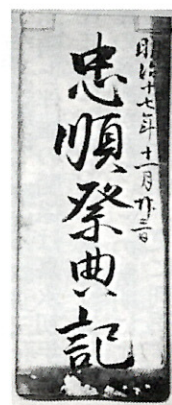 明治十七年十一月廿三日
忠順祭典記